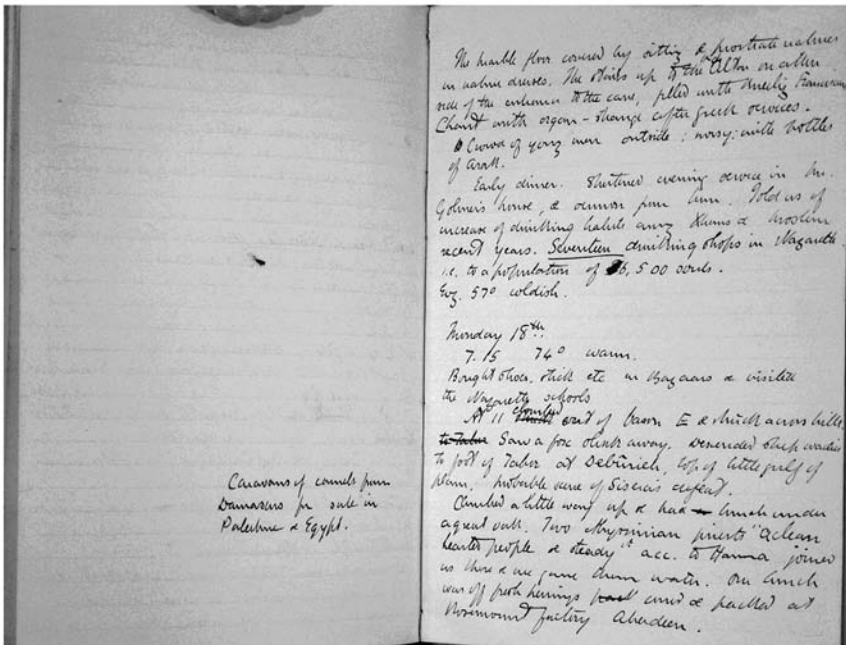 Caravans of camels from
Damascus for sale in
Palestine & Egypt.
The marble floor covered by sitting & prostrate natives
in native dresses. The stairs up to the altar on either
side of the entrance to the cave, filled with kneeling Franciscans
Chant with organ - strange after greek services.
Crowd of young men outside; noisy; with bottles
of arak.
Early dinner. Shortened evening service in Mr.
house, & sermon from him. Told us of
increase of drinking habits among Xtians & Moslem
recent years. Seventeen drinking shops in Nazareth
i.e. to a population of 6,500 souls.
Evg. 57° coldish.
Monday 18th.
7.15 74° warm.
Bought shoes, stick etc in Bazaars & visited
the Nazareth schools
At 11 climbed out of basin E & struck across hills.
to Tabor Saw a fox slink away. Descended steep wadies
to foot of Tabor at Debûrieh, top of little gulf of
plain, probable scene of Sisera's defeat.
Climbed a little way up & had lunch under
a great oak. Two Abyssinian priests "a clean
hearted people & steady" acc. to Hanna joined
us there & we gave them water. Our lunch
was off fresh herrings cured & packed at
Rosemount factory Aberdeen.